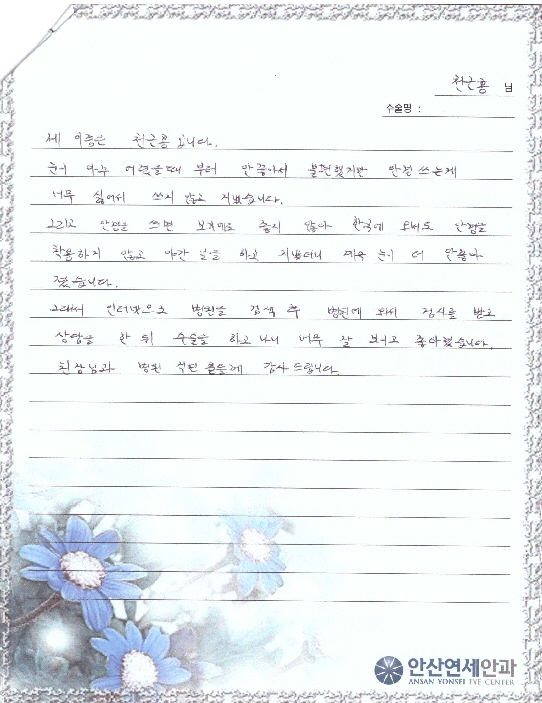 천근홍 님
수술명 :
제 이름은 천근홍 입니다.
눈이 아주 어렸을때 부터 안좋아서 불편했지만 안경 쓰는게
너무 싫어서 쓰지 않고 지냈습니다.
그리고 안경을 쓰면 보기에도 좋지 않아 한국에 와서도 안경을
착용하지 않고 야간 일을 하고 지냈더니 계속 눈이 더 안좋아
졌습니다.
그래서 인터넷으로 병원을 검색 후 병원에 와서 검사를 받고
상담을 한 뒤 수술을 하고 나니 너무 잘 보이고 좋아졌습니다.
원장님과 병원 직원 분들께 감사 드립니다.
안산연세안과
ANSAN YONSEI EYE CENTER